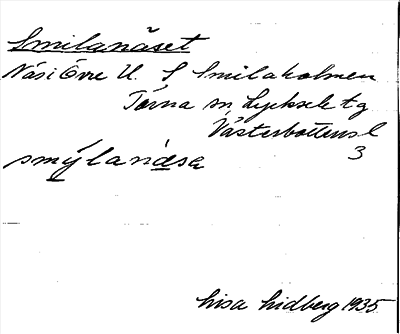 Smilanäset
Näs i Övre U. S Smilaholmen
Tärna sn Lycksele tg
Västerbottens l
3
smýlanäsa
Lisa Lidberg 1935